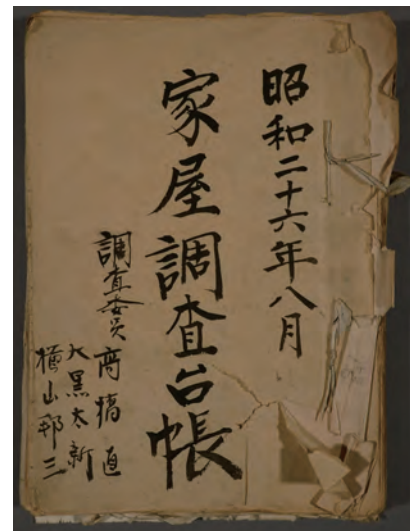 昭和二十六年八月
家屋調査台帳
調査委員 髙橋直
大黒太新
檜山邦三